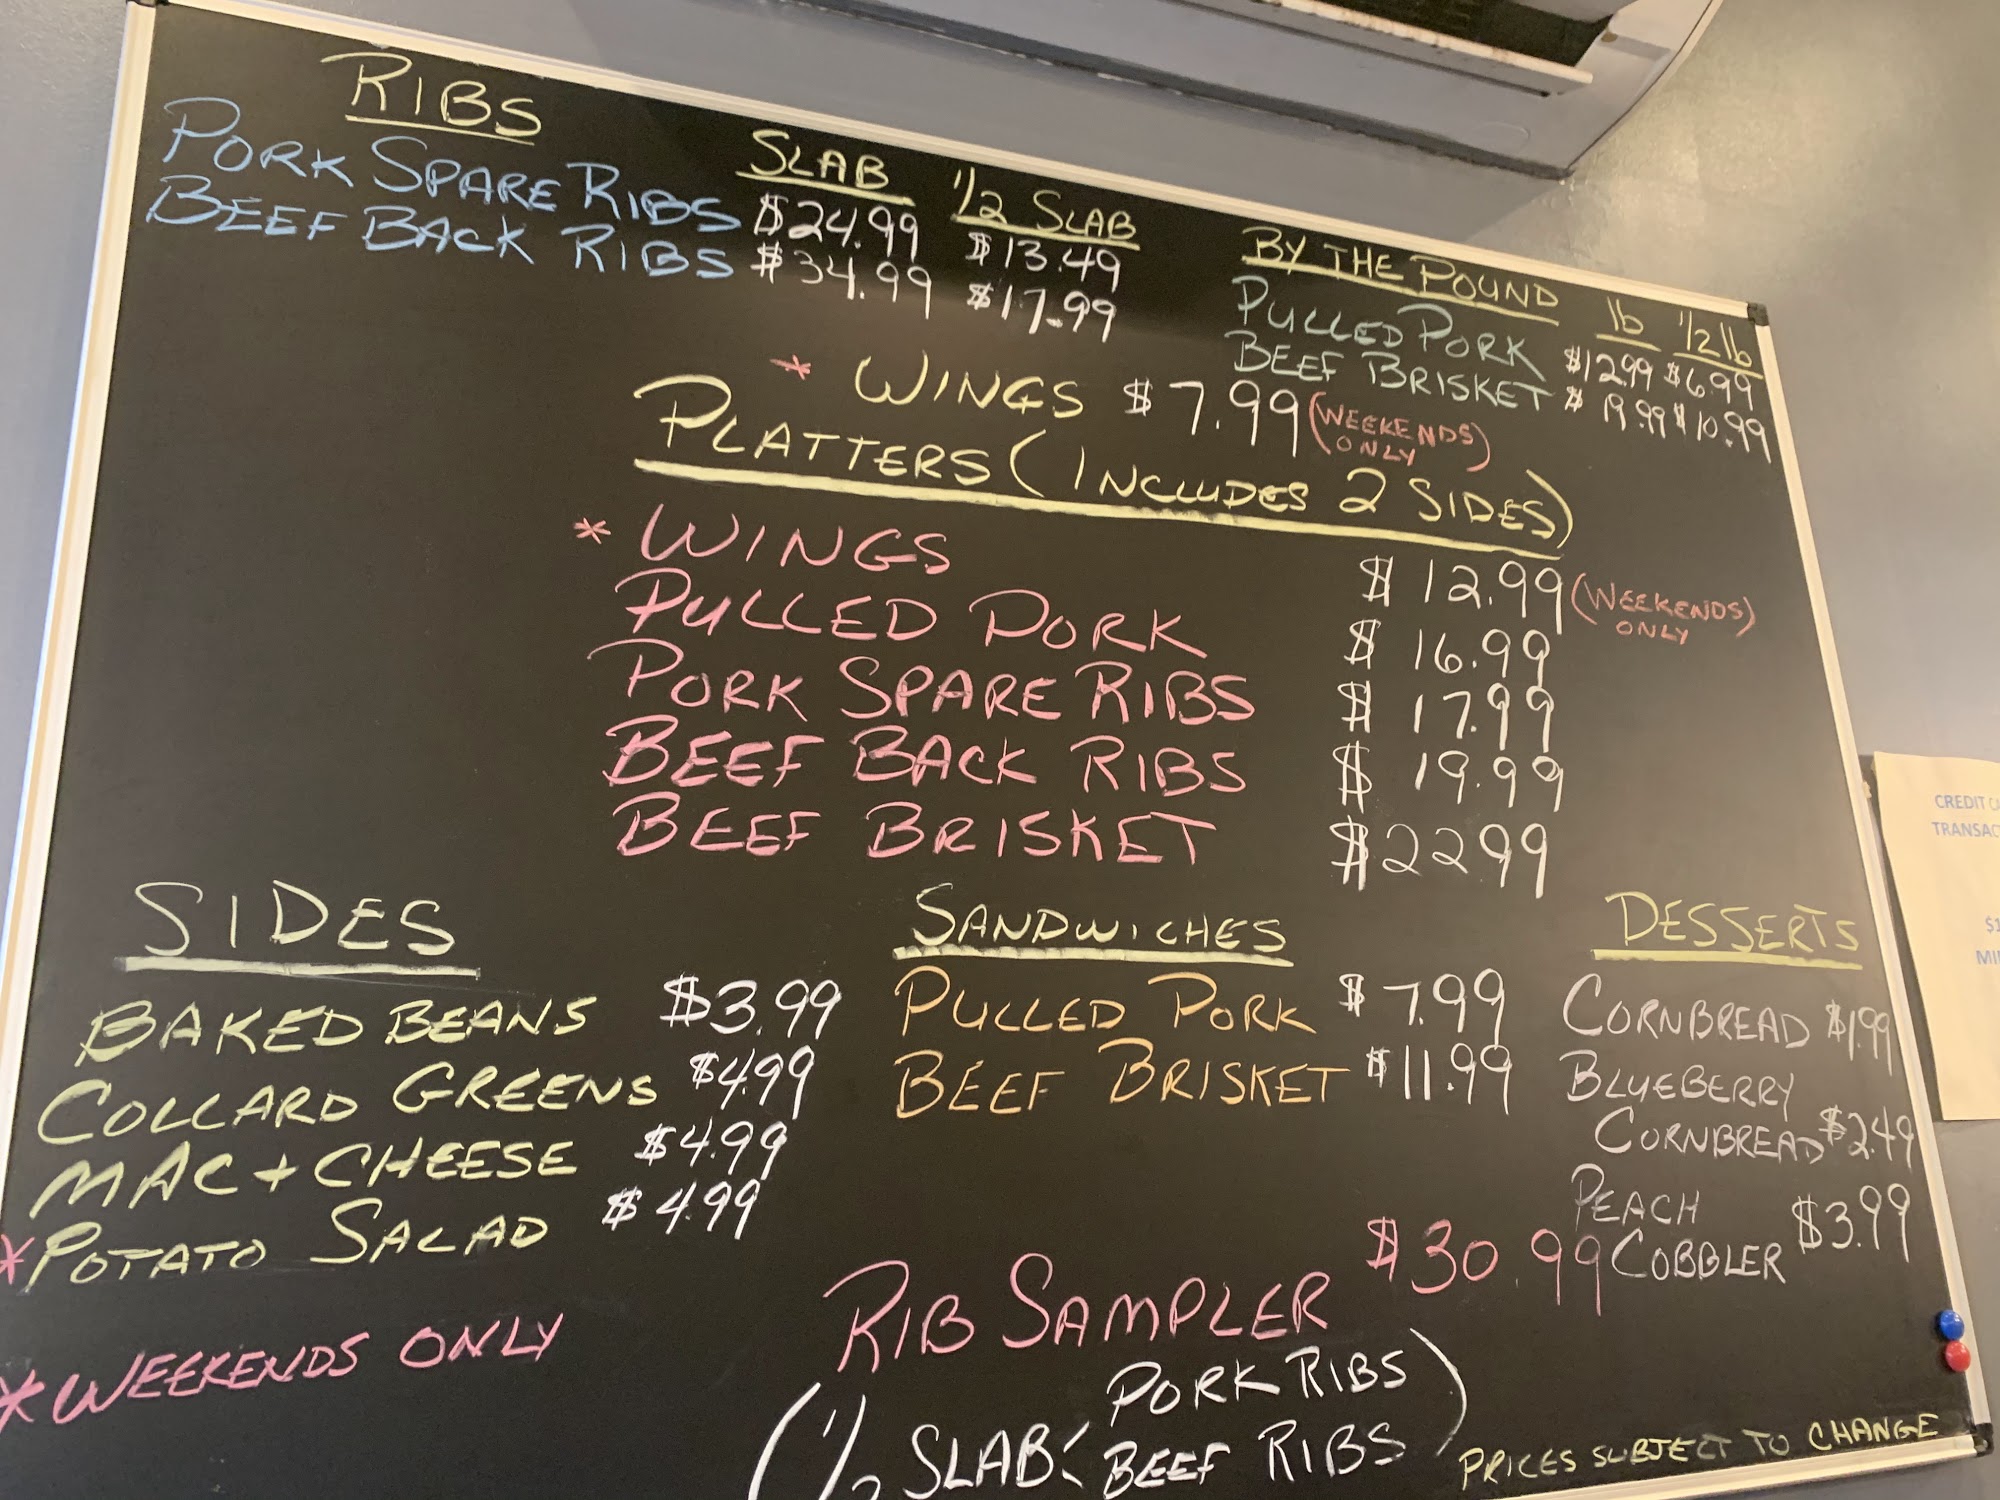 RIBS
SLAB 1/2 SLAB
PORK SPARE RIBS $24.99 $13.49
BEEF BACK RIBS $34.99 $17.99
BY THE POUND lb 1/2 lb
PULLED PORK $12.99 $6.99
BEEF BRISKET $19.99 $10.99
* WINGS $7.99 (WEEKENDS ONLY)
PLATTERS (INCLUDES 2 SIDES)
* WINGS $12.99 (WEEKENDS ONLY)
PULLED PORK $16.99
PORK SPARE RIBS $17.99
BEEF BACK RIBS $19.99
BEEF BRISKET $22.99
SIDES
BAKED BEANS $3.99
COLLARD GREENS $4.99
MAC + CHEESE $4.99
*POTATO SALAD $4.99
*WEEKENDS ONLY
SANDWICHES
PULLED PORK $7.99
BEEF BRISKET $11.99
DESSERTS
CORNBREAD $1.99
BLUEBERRY
CORNBREAD $2.49
PEACH
COBBLER $3.99
RIB SAMPLER $30.99
(1/2 SLAB: PORK RIBS
BEEF RIBS)
PRICES SUBJECT TO CHANGE
CREDIT